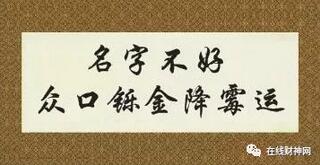 名字不好
众口铄金降霉运
在线财神网